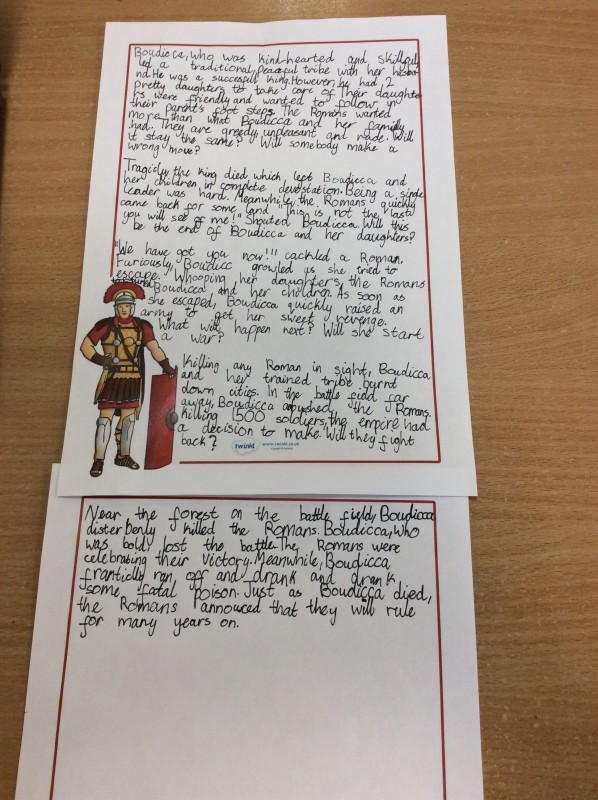 Boudicca, who was kind-hearted and skillful,
led a traditional, peaceful tribe with her husba-
nd. He was a succesful king. However, he had 2
pretty daughters to take care of. Their daughte-
rs were friendly and wanted to follow in
their parent's foot steps. The Romans wanted
more than what Boudicca and her family
had. They are greedy, unpleasant and rude. Will
it stay the same? Will somebody make a
wrong move?
Tragicly the king died, which left Boudicca and
her children in complete devostation. Being a single
leader was hard. Meanwhile, the Romans quickly
came back for some land. "This is not the last
you will see of me!" Shouted Boudicca. Will this
be the end of Boudicca and her daughters?
"We have got you now!!" cackled a Roman.
Furiously, Boudicc growled as she tried to
escape. Whooping her daughters, the Romans
Boudicca and her children. As soon as
she escaped, Boudicca quickly raised an
army to get her sweet revenge.
What will happen next? Will she start
a war?
Killing any Roman in sight, Boudicca
and her trained tribe burnt
down cities. In the battle field far
away, Boudicca the Romans.
Killing 1500 soldiers, the empire had
a decision to make. Will they fight
back?
twinkl www.twinkl.co.uk
Near the forest on the battle field, Boudicca
disterbenly killed the Romans. Boudicca, who
was bold, lost the battle. The Romans were
celebrating their victory. Meanwhile, Boudicca
franticlly ran off and drank and drank
some fatal poison. Just as Boudicca died,
the Romans annouced that they will rule
for many years on.